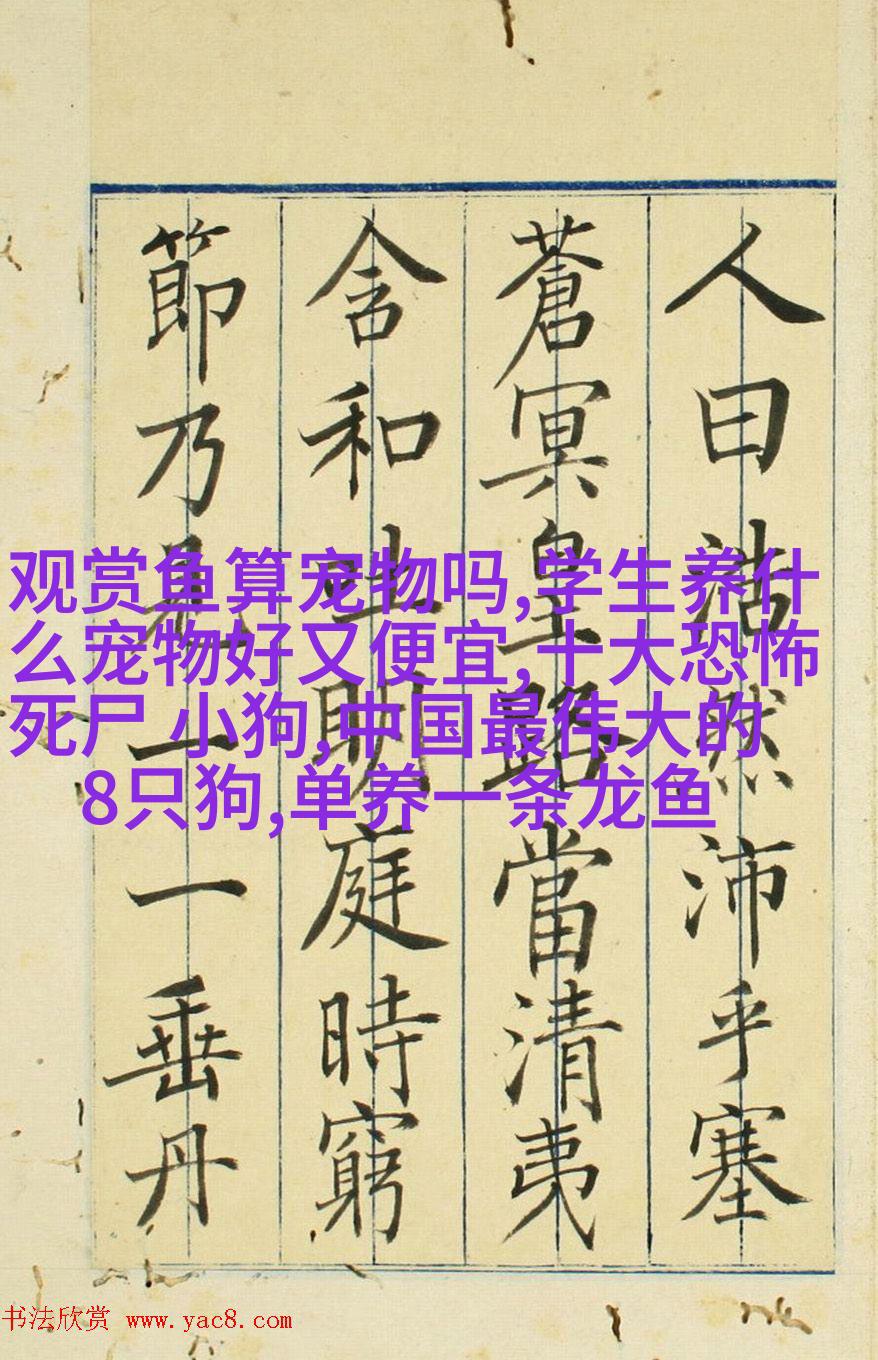 人曰浩然沛乎塞
蒼冥皇路當清夷
含和吐明庭時窮
節乃見一一垂丹
观赏鱼算宠物吗,学生养什
么宠物好又便宜,十大恐怖
死尸 小狗,中国最伟大的
8只狗,单养一条龙鱼
书法欣赏 www.yac8.com